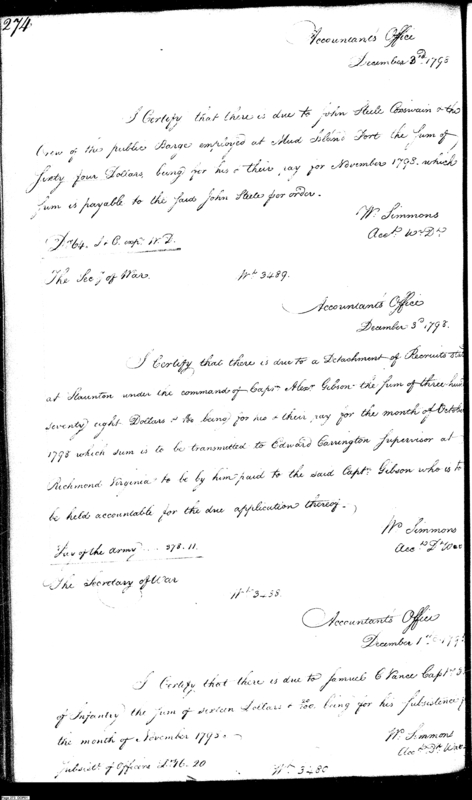 274
Accountants Office
December 3d. 1793
I Certify that there is due to John Stele Coxswain & the
Crew of the public Barge employed at Mud Island Fort the Sum of
Sixty four Dollars being for his & their pay for November 1793. which
sum is payable to the said John Stele por order.
Wm Simmons
Acct. Wr Dt.
Drs 64.
The Secy of War
Wt 3489.
Accountants Office
December 3d. 1793.
I Certify that there is due to a Detachment of Recruits
at Staunton under the command of Capt. Alexr. Gibson the sum of three
Seventy eight Dollars & being for his & their pay for the month of October
1793 which sum is to be transmitted to Edward Carrington Supervisor at
Richmond Virginia to be by him paid to the said Capt. Gibson who is to
be held accountable for the due application thereof.
Wm Simmons
Acct. Dt War
Pay of the Army 378.11.
The Secretary of War
Wt 3438.
Accountants Office
December 1793
I Certify that there is due to Samuel C Vance Capt
of Infantry the sum of sixteen Dollars & being for his Subsistence
the month of November 1793.
Wm Simmons
Acct Dt War
Subsist. of Officers 16. 20
Wt 3480